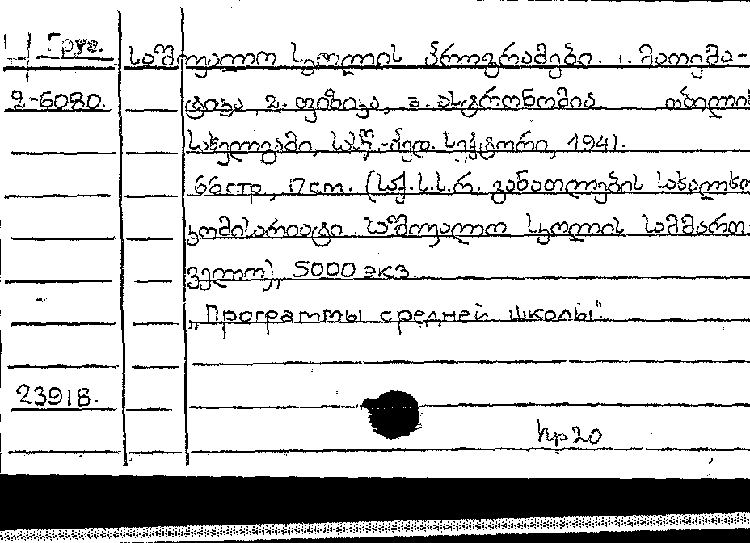 Груз. საშუალო სკოლის პროგრამები. 1. მათემა-
2-6080. ტიკა, 2. ფიზიკა, 3. ასტრონომია თბილის
სახელგამი, სას.-პედ. სექტორი, 1941.
66стр., 17см. (საქ.ს.ს.რ. განათლების სახალხო
კომისარიატი საშუალო სკოლის სამმართ-
ველო), 5000 экз
„Программы средней школы"
23918.
кр20